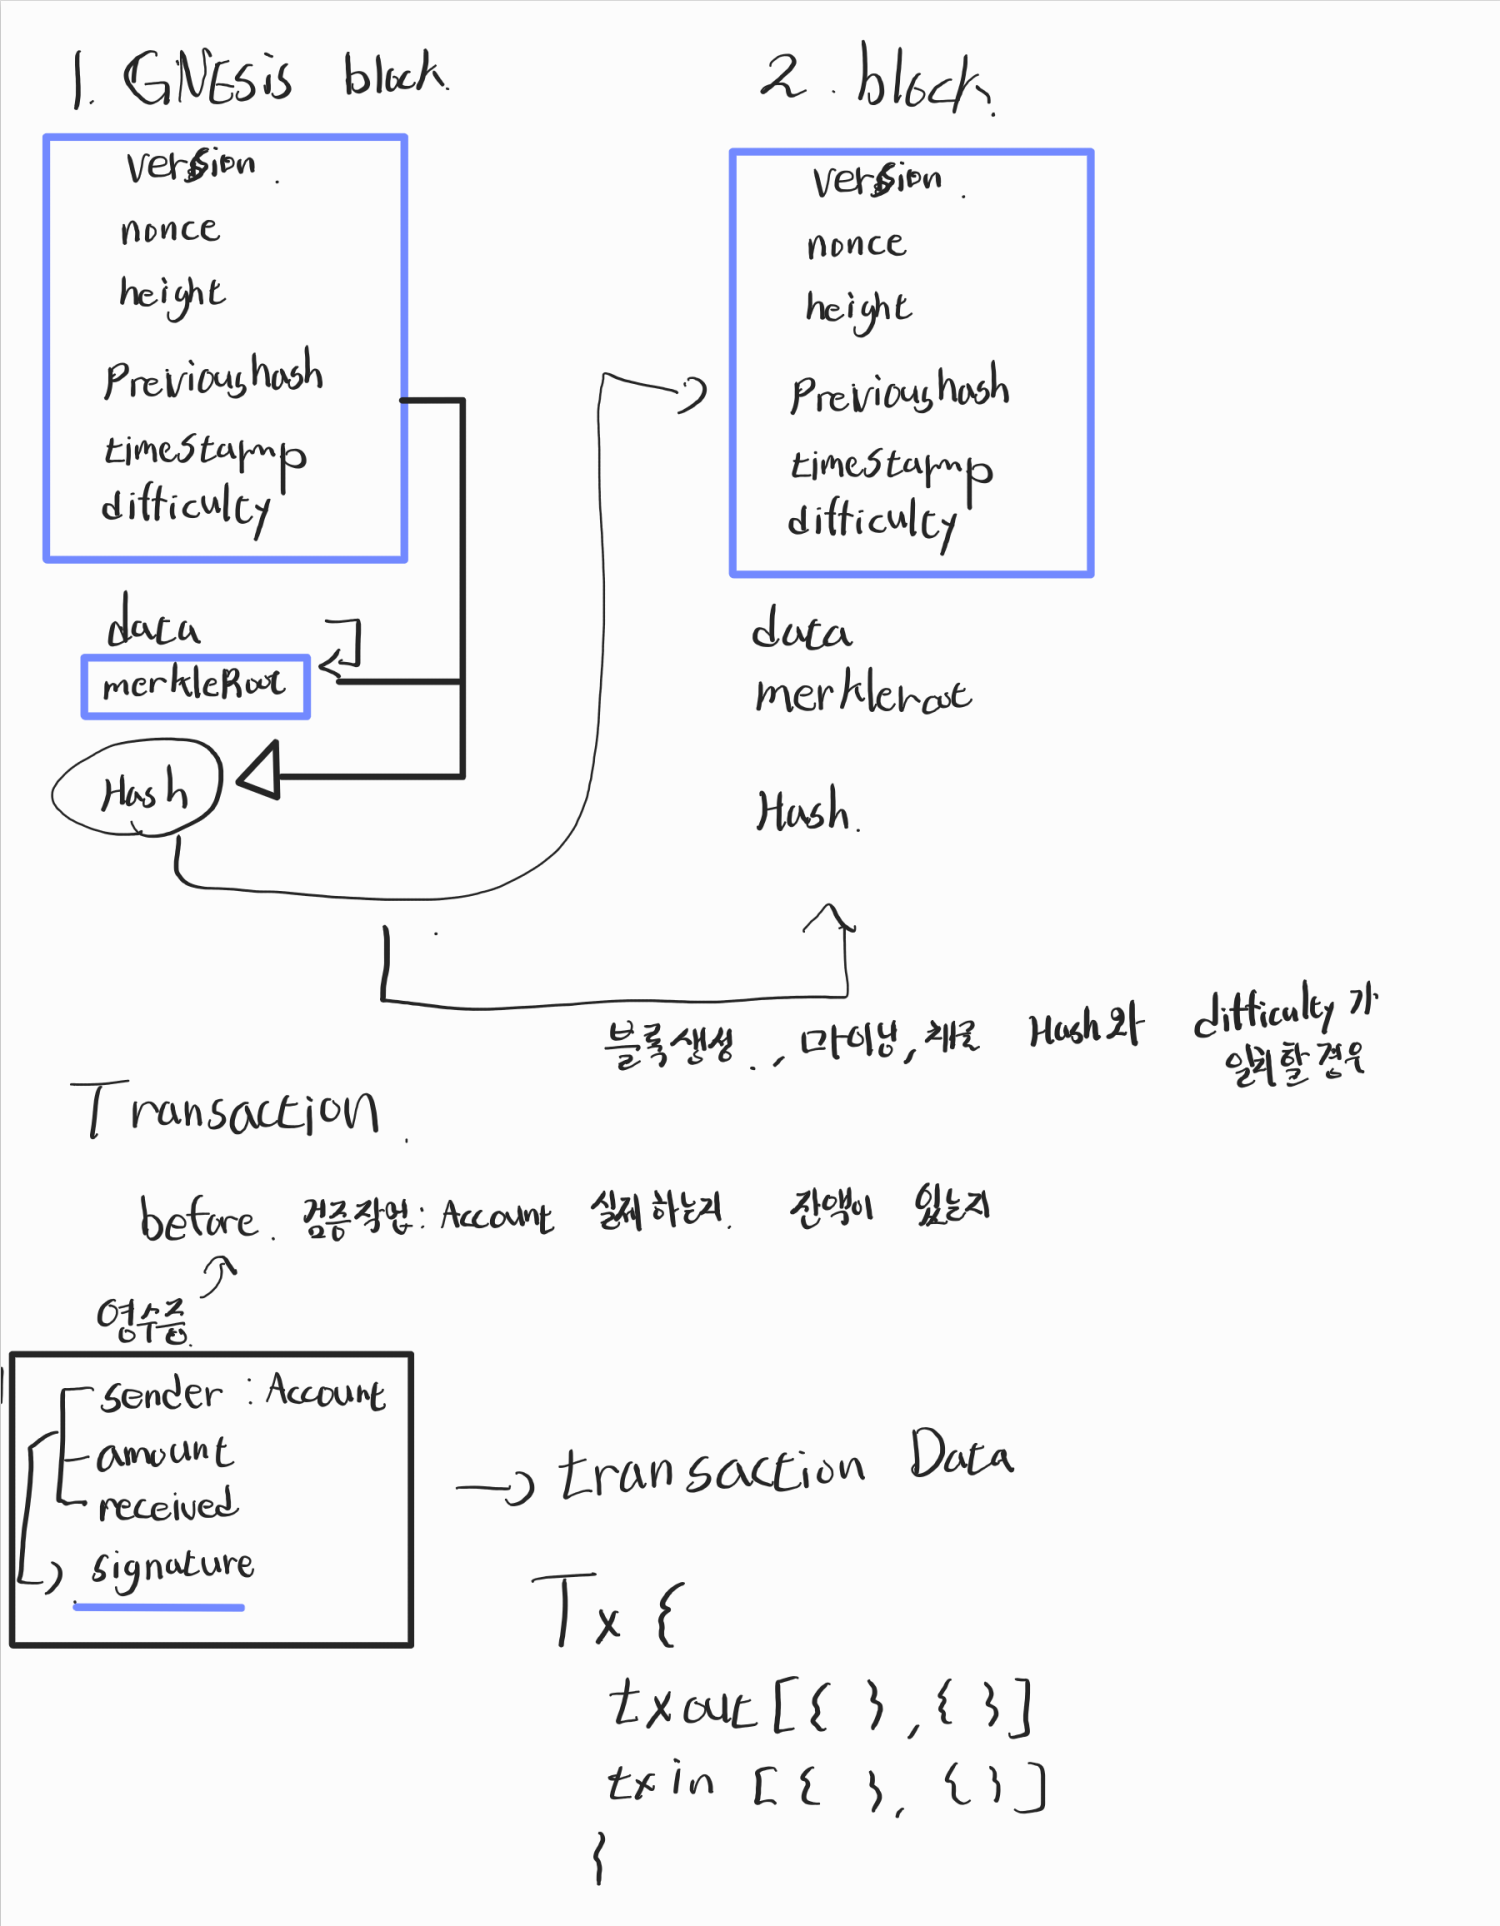 1. GNEsis block.
version.
nonce
height
Previoushash
timestamp
difficulty
data
merkleRoot
Hash
2. block.
version.
nonce
height
Previoushash
timestamp
difficulty
data
merkleroot
Hash.
블록생성., 마이닝, 채굴 Hash와 difficulty가
일치할 경우
Transaction.
before. 검증작업: Account 실제하는지. 잔액이 있는지
영수증.
sender : Account
amount
received
signature
transaction Data
Tx {
txout [{ }, { }]
txin [{ }, { }]
}